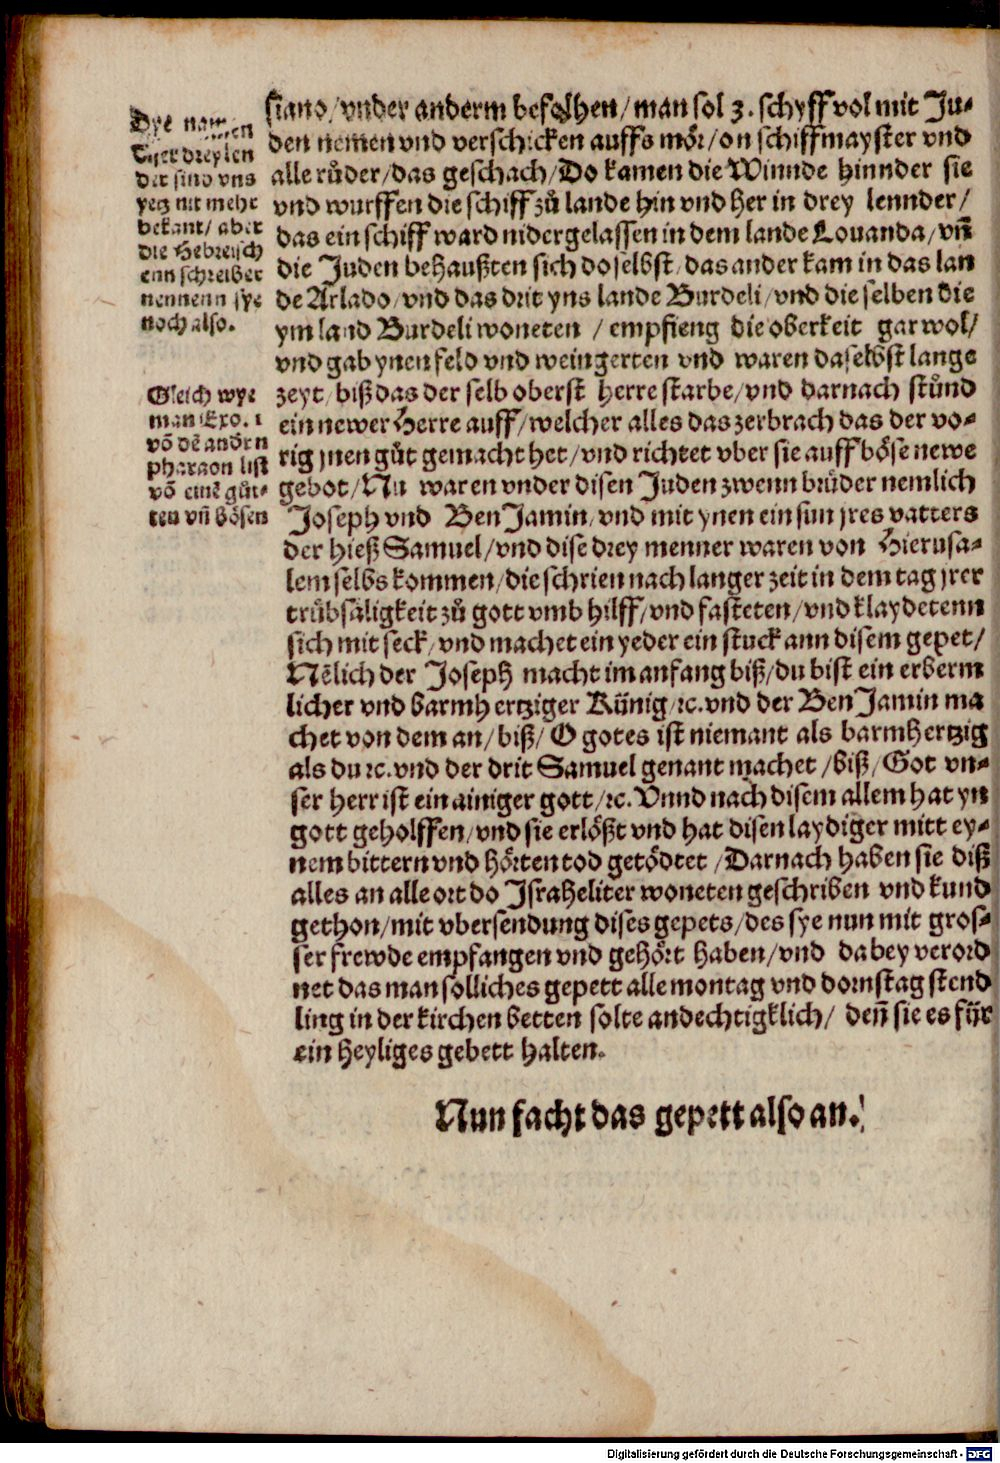 Dye namen
diser dreylen
der sind vns
yetz nit mehr
bekant/ aber
die Hebreisch
enn schreiber
nennenn sye
noch also.
Gleich wye
man Exo. 1
võ dẽ andern
pharaon list
võ einẽ gůt-
ten vñ bösen
siano/vnder anderm befolhen/man sol 3. schyff vol mit Ju-
den nemen vnd verschicken auffs mör/on schiffmayster vnd
alle růder/das geschach/Do kamen die Winnde hinnder sie
vnd wurffen die schiff zů lande hin vnd her in drey lennder/
das ein schiff ward nidergelassen in dem lande Louanda/vñ
die Juden behaußten sich doselbst/das ander kam in das lan
de Arlado/vnd das drit yns lande Burdeli/vnd die selben die
ym land Burdeli woneten /empfieng die oberkeit gar wol/
vnd gab ynen feld vnd weingerten vnd waren daselbst lange
zeyt/biß das der selb oberst herre starbe/vnd darnach stůnd
ein newer Herre auff/welcher alles das zerbrach das der vo-
rig jnen gůt gemacht het/vnd richtet vber sie auff böse newe
gebot/Nu waren vnder disen Juden zwenn brůder nemlich
Joseph vnd BenJamin/vnd mit ynen ein sun jres vatters
der hieß Samuel/vnd dise drey menner waren von Hierusa-
lem selbs kommen/die schrien nach langer zeit in dem tag jrer
trůbsäligkeit zů gott vmb hilff/vnd fasteten/vnd klaydetenn
sich mit seck/vnd machet ein yeder ein stuck ann disem gepet/
Nẽlich der Joseph macht im anfang biß/du bist ein erberm
licher vnd barmhertziger Künig/ꝛc.vnd der BenJamin ma
chet von dem an/biß/O gotes ist niemant als barmhertzig
als du ꝛc.vnd der drit Samuel genant machet /biß/Got vn-
ser herr ist ein ainiger gott/ꝛc.Vnnd nach disem allem hat yn
gott geholffen/vnd sie erlößt vnd hat disen laydiger mitt ey-
nem bittern vnd hörten tod getödtet /Darnach haben sie diß
alles an alle ort do Jsraheliter woneten geschriben vnd kund
gethon/mit vbersendung dises gepets/des sye nun mit gros-
ser frewde empfangen vnd gehört haben/vnd dabey verord
net das man solliches gepett alle montag vnd dornstag stend
ling in der kirchen betten solte andechtigklich/ deñ sie es für
ein heyliges gebett halten.
Nun facht das gepett also an.
Digitalisierung gefördert durch die Deutsche Forschungsgemeinschaft - DFG